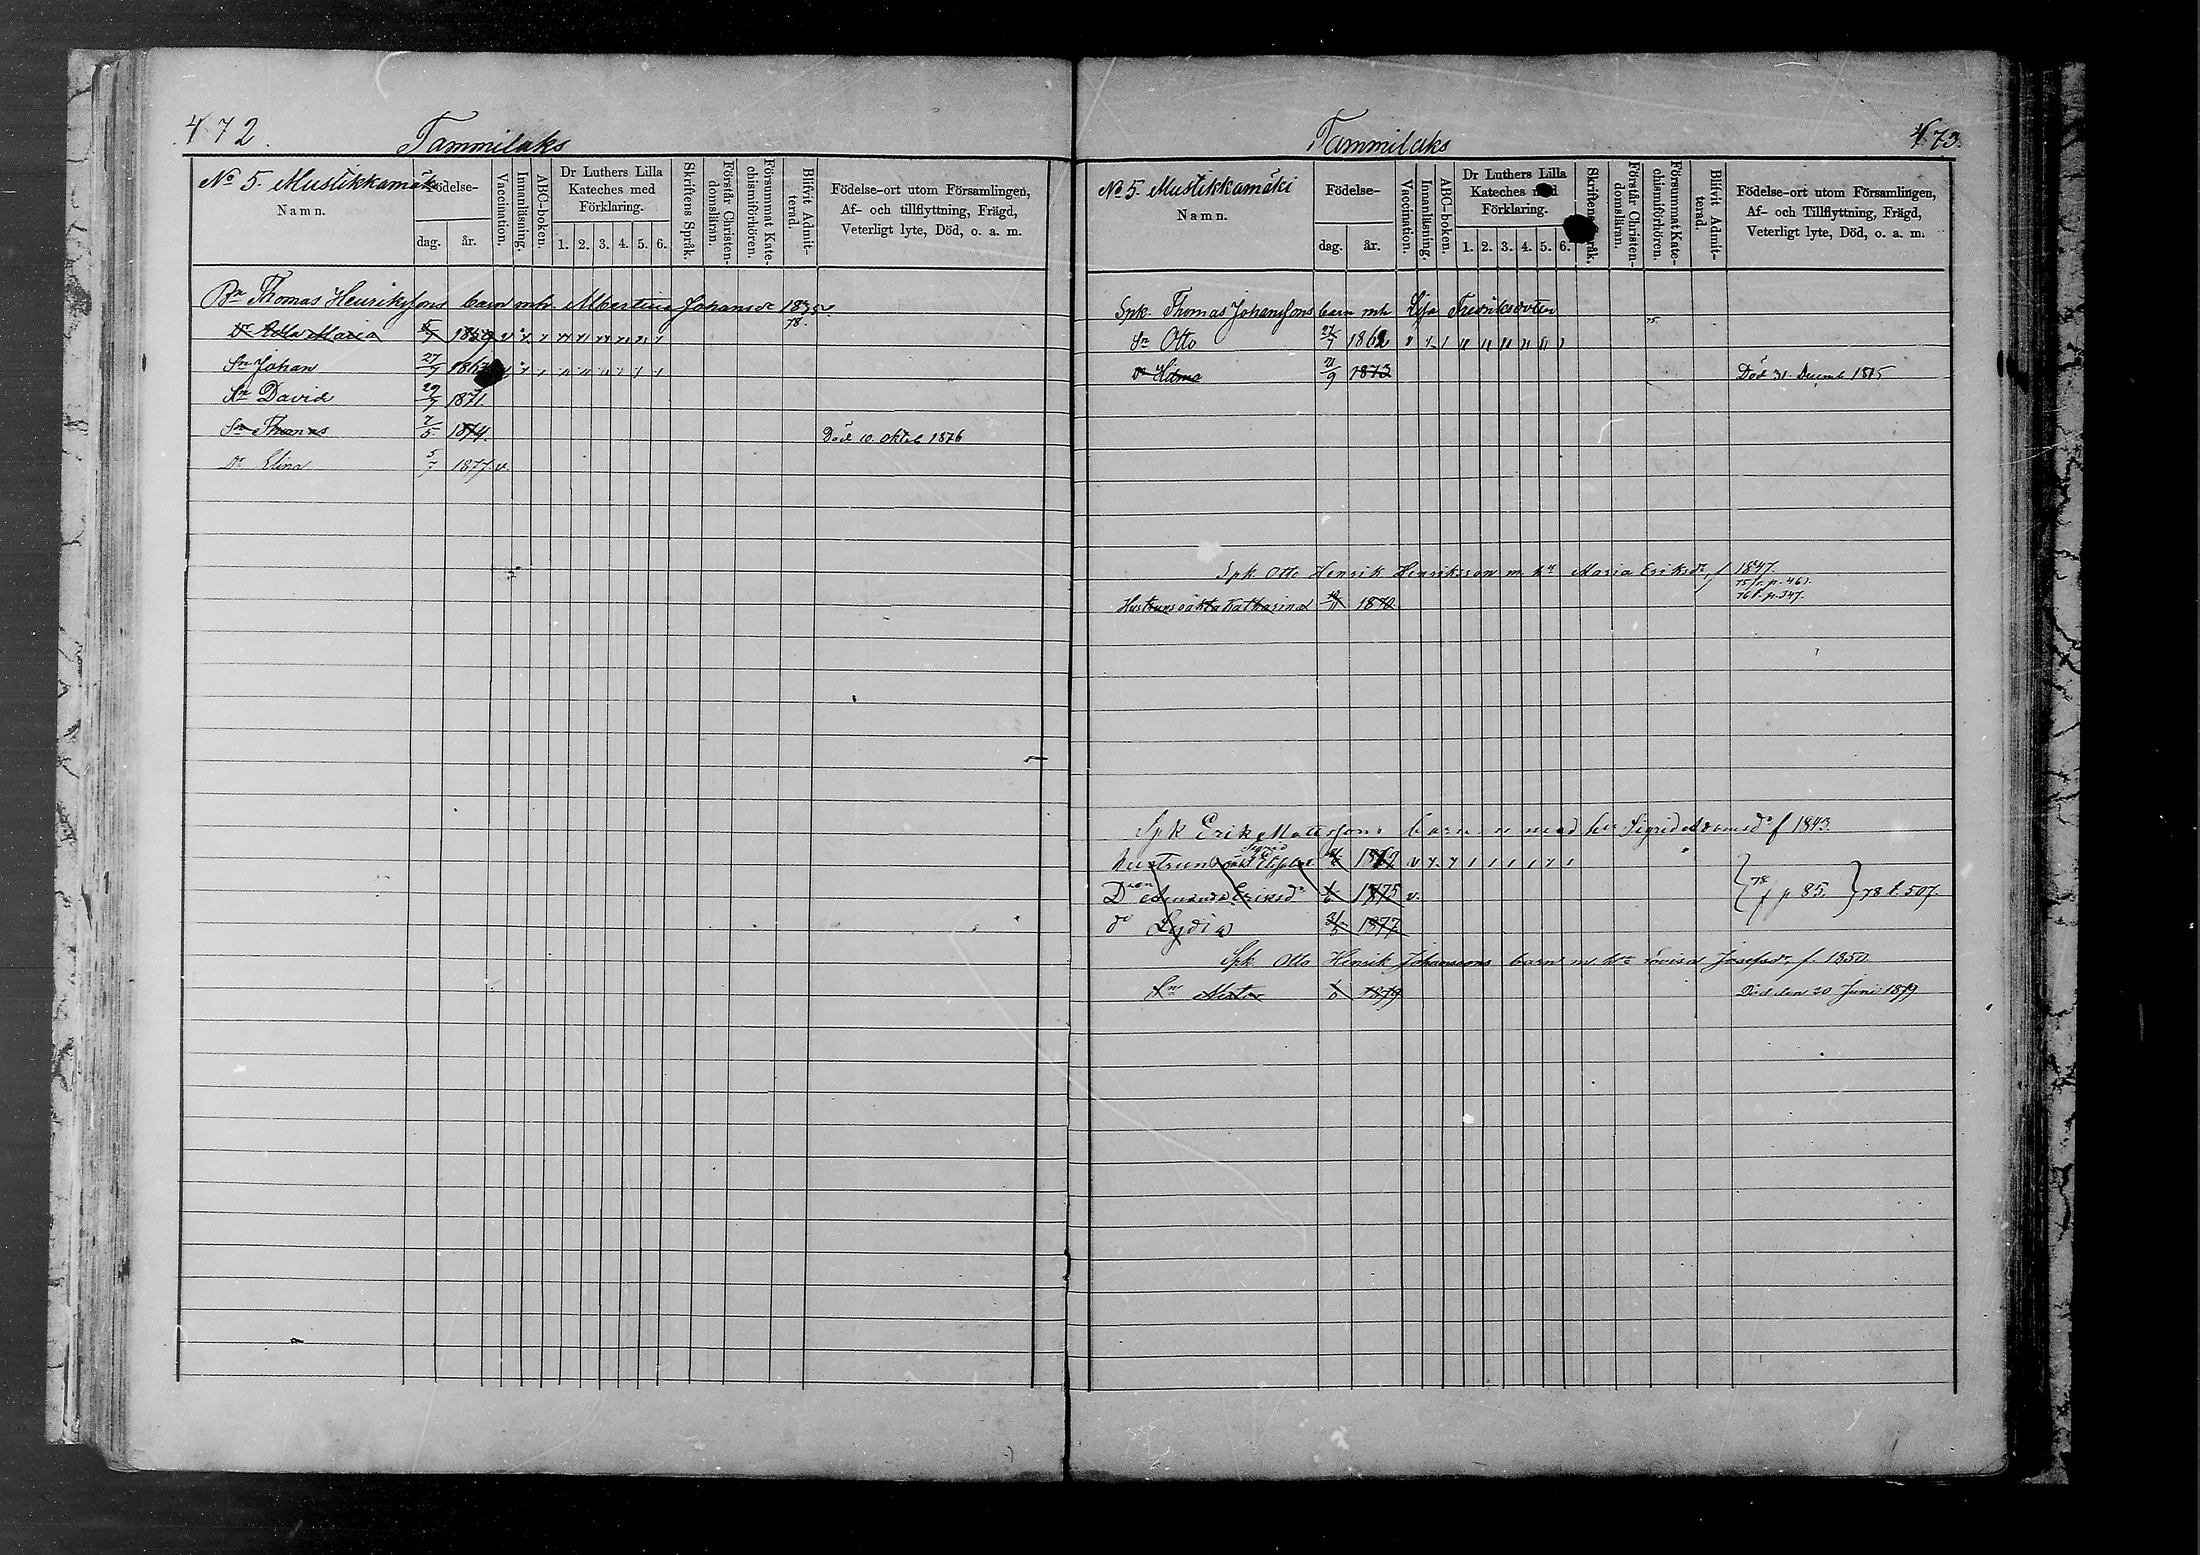 472.
Tammilaks
No 5. Mustikkamäki
Namn.
Födelse-
dag.
år.
Vaccination.
Innanläsning.
ABC-boken.
Dr Luthers Lilla
Kateches med
Förklaring.
1. 2. 3. 4. 5. 6.
Skriftens Språk.
Förstår Christen-
domsläran.
Försummat Kate-
chismiförhören.
Blifvit Admit-
terad.
Födelse-ort utom Församlingen,
Af- och tillflyttning, Frägd,
Veterligt lyte, Död, o. a. m.
Bn Thomas Henrikssons barn mh. Albertina Johansdr 1835
78.
Dr Adla Maria 1859
Sn Johan 27/9
Sn David 29/7 1871.
Sn Thomas 7/5 1874 Död 10 Oktob 1876
Dr Elina 5/7 1877 v.
473.
Tammilaks
No 5. Mustikkamäki
Namn.
Födelse-
dag.
år.
Vaccination.
Innanläsning.
ABC-boken.
Dr Luthers Lilla
Kateches med
Förklaring.
1. 2. 3. 4. 5. 6.
Skriftens Språk.
Förstår Christen-
domsläran.
Försummat Kate-
chismiförhören.
Blifvit Admit-
terad.
Födelse-ort utom Församlingen,
Af- och Tillflyttning, Frägd,
Veterligt lyte, Död, o. a. m.
Spk. Thomas Johanssons barn mh Lisa Fredriksdotter
75.
Sn Otto 27/7 1862
dr Hilma 21/9 1873 Död 31 Decemb 1875
Spk. Otto Henrik Henriksson m. hu Maria Eriksdr f 1847.
75 fr. p. 461.
Hustruns oäkta Katharina 1870 76 t. p. 347.
Spk Erik Mattssons barn med hu Sigrid Adamsdr f 1843.
Hustruns oäkt 1862
Dren Amanda Eriksdr 1875 v. 78 f p 85. 78 t. 507.
dr Lydia 1877
Spk Otto Henrik Johanssons barn m. hu Lovisa Josefsdr f. 1850.
Sn 1879 Död den 20 Juni 1879